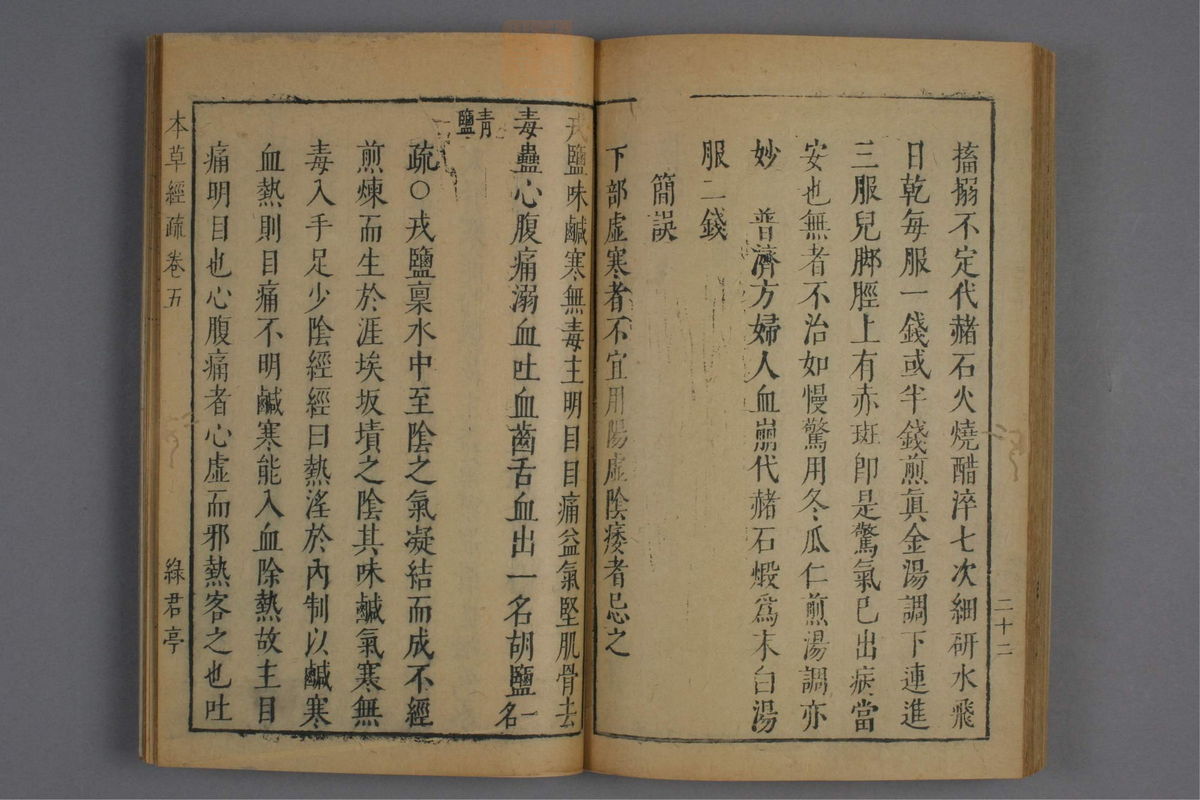 搐搦不定代赭石火燒醋淬七次細研水飛
日乾每服一錢或半錢煎眞金湯調下連進
三服兒脚脛上有赤斑卽是驚氣已出病當
安也無者不治如慢驚用冬瓜仁煎湯調亦
妙　普濟方婦人血崩代赭石煅爲末白湯
服二錢
簡誤
下部虛寒者不宜用陽虛陰痿者忌之
二十二
戎鹽味鹹寒無毒主明目目痛益氣堅肌骨去
毒蠱心腹痛溺血吐血齒舌血出一名胡鹽一名
青鹽
疏○戎鹽稟水中至陰之氣凝結而成不經
煎煉而生於涯埃坂墳之陰其味鹹氣寒無
毒入手足少陰經經曰熱淫於內制以鹹寒
血熱則目痛不明鹹寒能入血除熱故主目
痛明目也心腹痛者心虛而邪熱客之也吐
本草經疏卷五
綠君亭